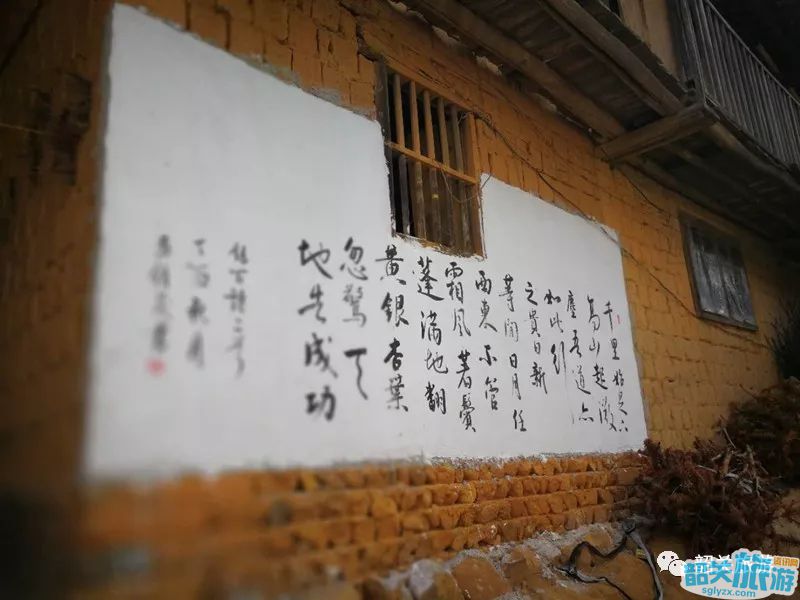 千里始足下
高山起微
塵吾道亦
如此行
之貴日新
等閒日月任
西東不管
霜風著鬢
蓬滿地翻
黃銀杏葉
忽驚天
地告成功
古詩二首
丁酉秋月
韶关旅游资讯网
sglyzx.com